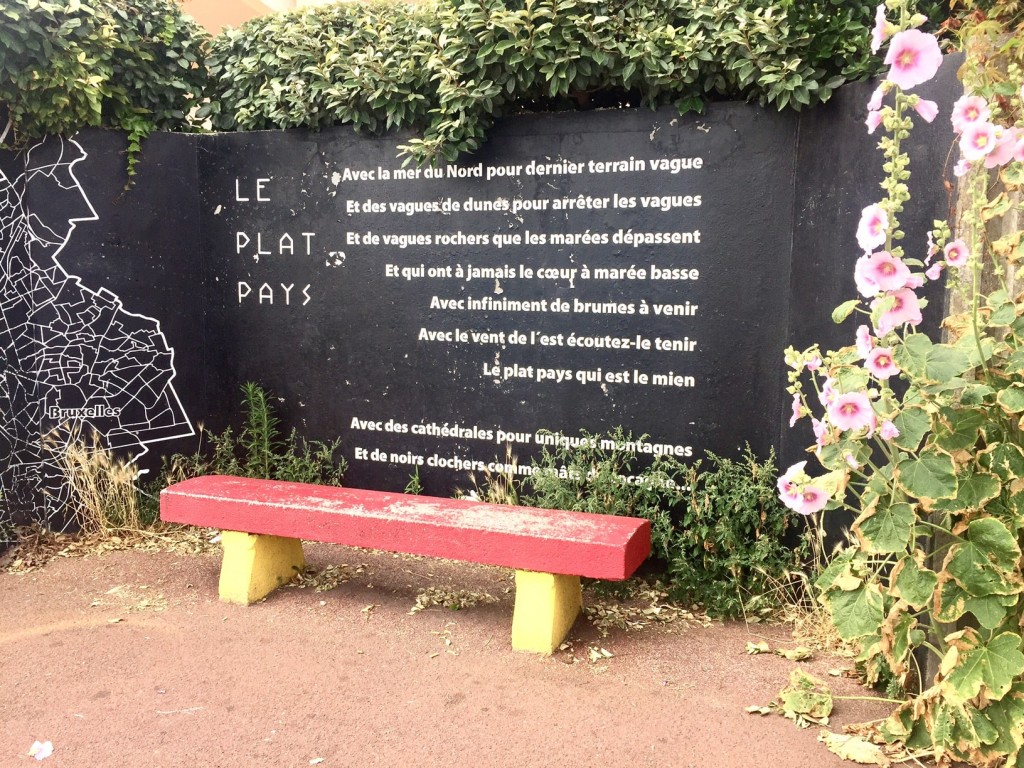 LE
PLAT
PAYS
Avec la mer du Nord pour dernier terrain vague
Et des vagues de dunes pour arrêter les vagues
Et de vagues rochers que les marées dépassent
Et qui ont à jamais le cœur à marée basse
Avec infiniment de brumes à venir
Avec le vent de l´est écoutez-le tenir
Le plat pays qui est le mien
Avec des cathédrales pour uniques montagnes
Et de noirs clochers comme mâts de cocagne...
Bruxelles